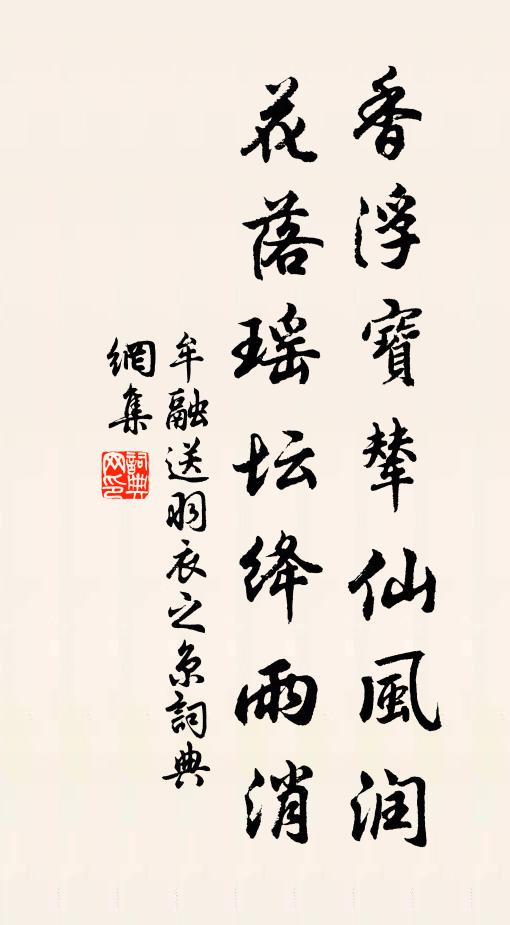 香浮寶輦仙風润
花落瑶坛绛雨消
牟融送羽衣之京詞典
網集
詞典網印